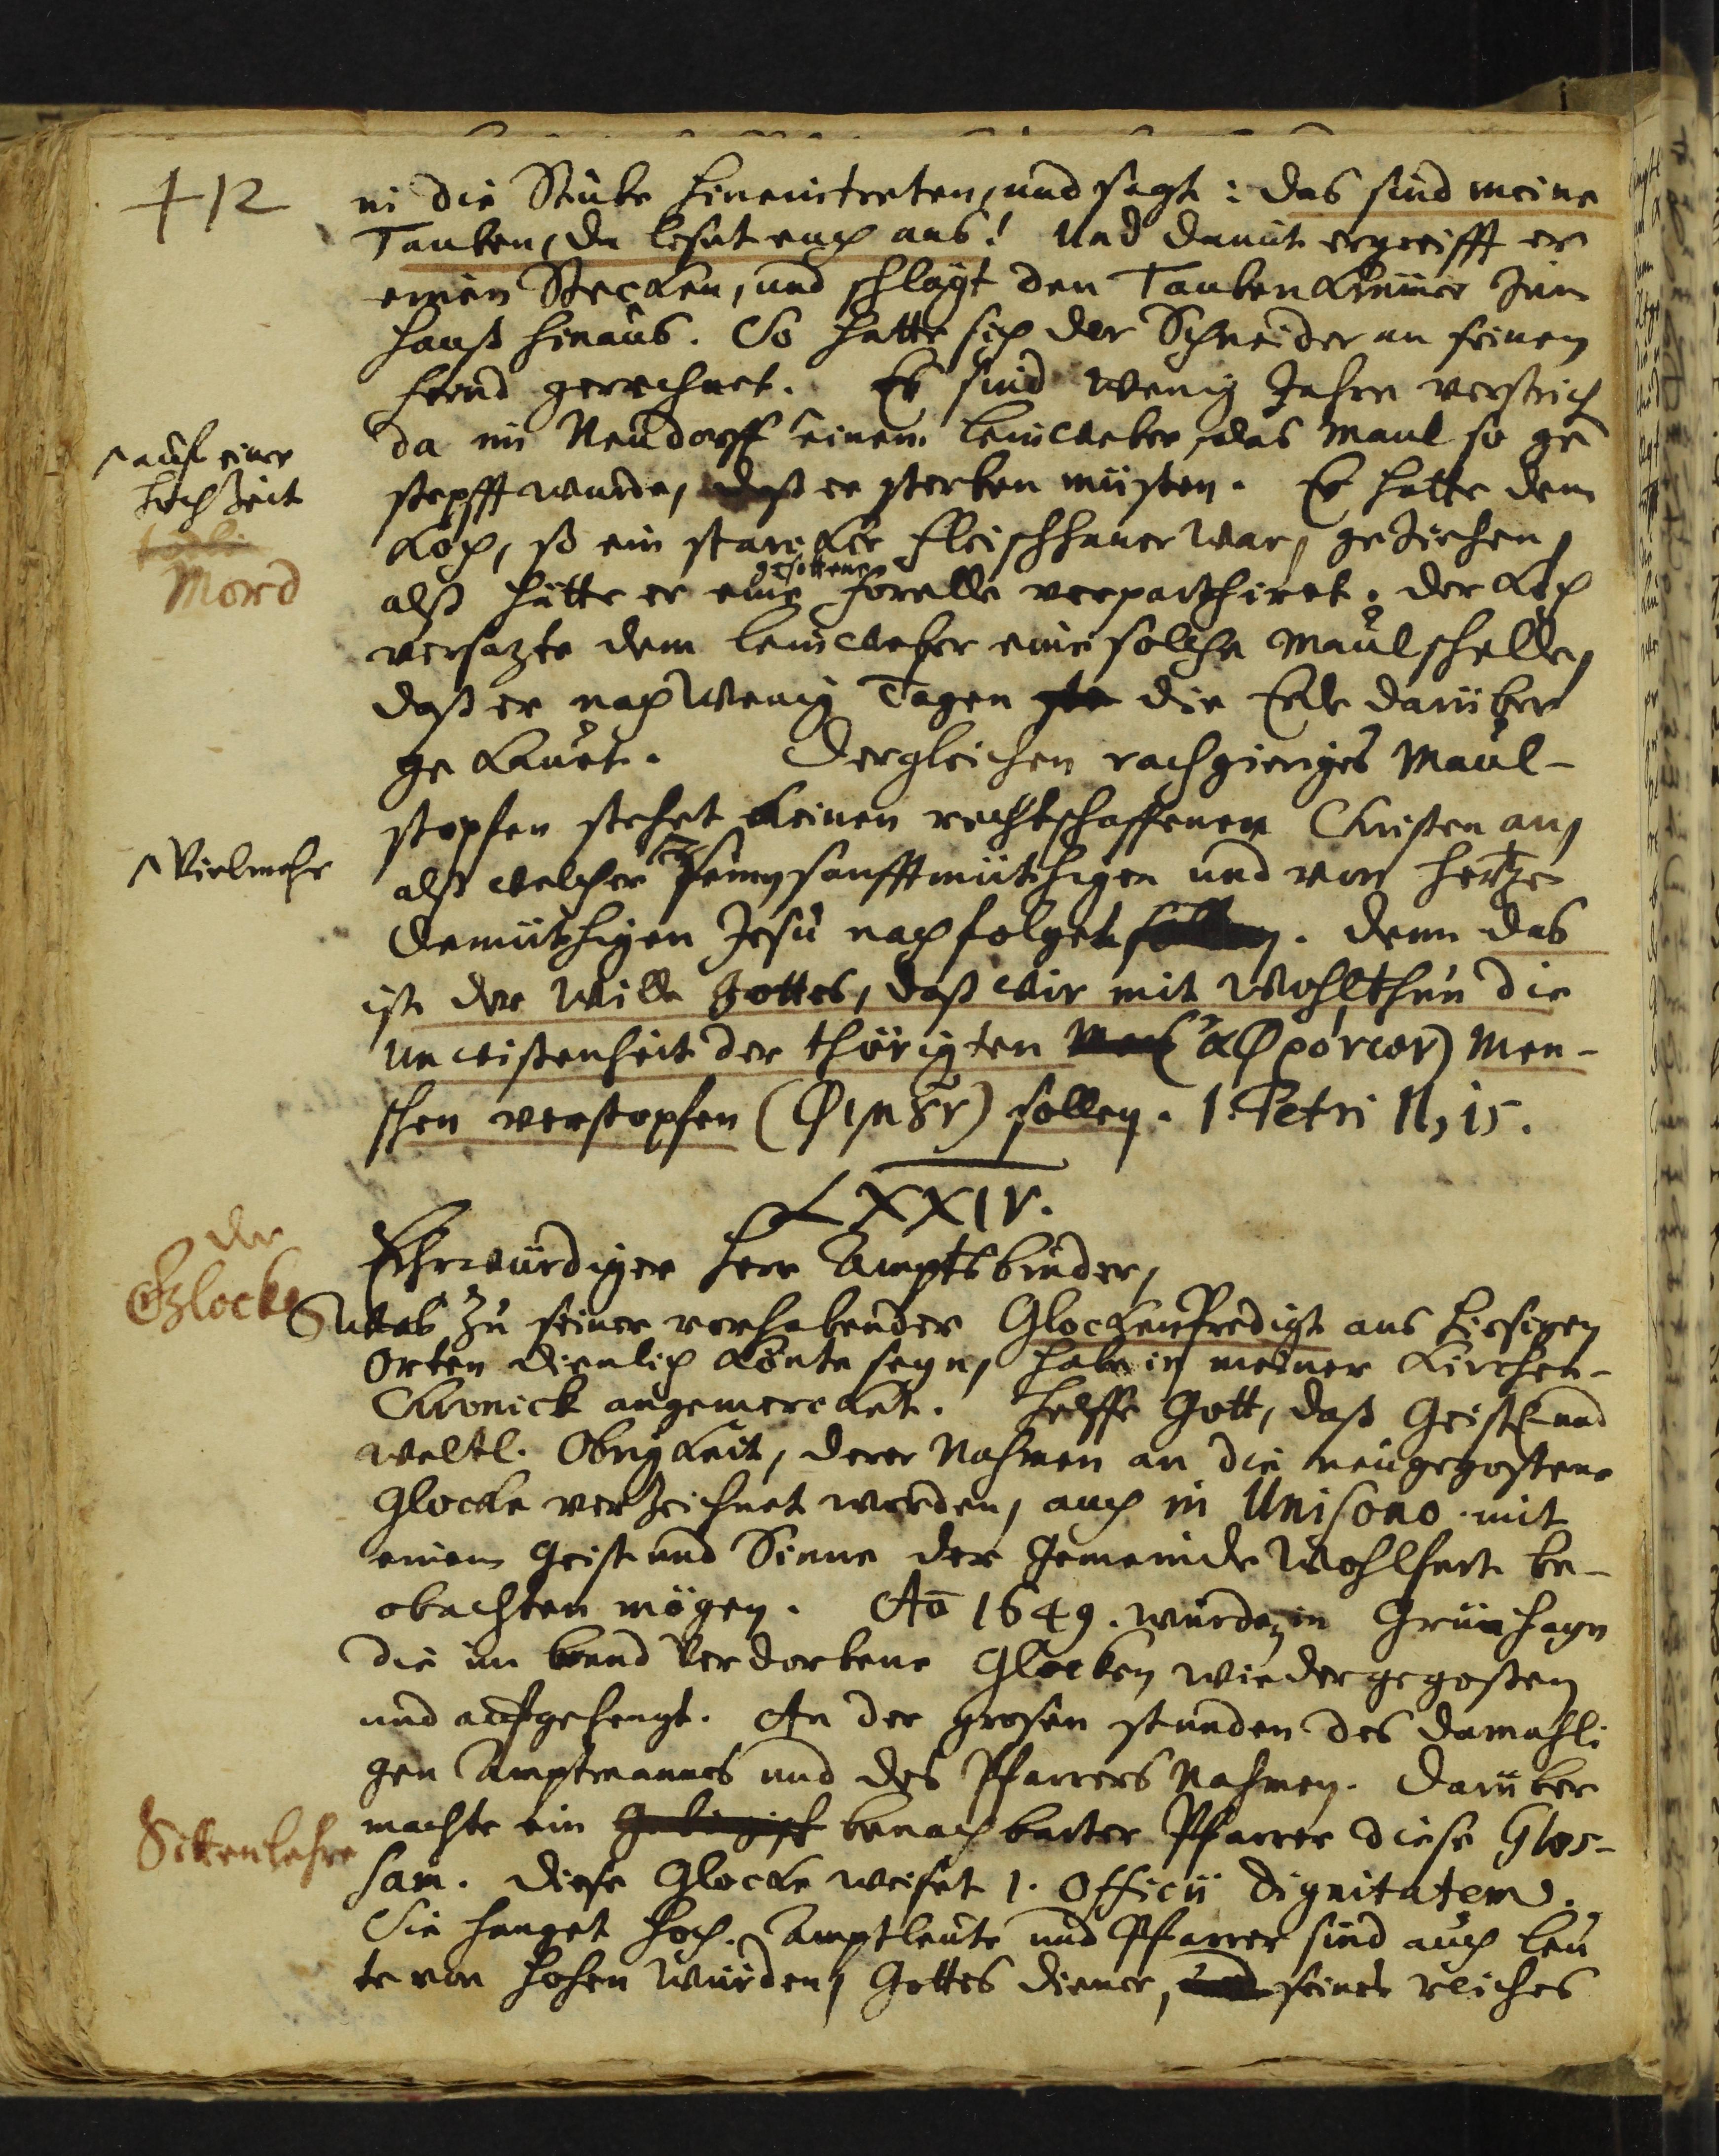 412
in die Stube hineintreten, und sagt: das sind meine
Tauben, da lesnt euch aus! Und damit ergreifft er
einen Stecken, und schlägt den Taubenkrämer zum
Hauß hinaus. So hatte sich der Schneider an seinen
Feind gerechnet. Es sind wenig Jahre verstrich
da im Neudorff einem Leinweber, das Maul so ge
^ auf einer
Hochzeit
stopfft wurde, daß er sterben müsten. Er hatte dem
Mord
Koch, so ein starcker Fleischhauer war, geziehen,
gesottene
alß hätte er eine Forelle verparthiret. Der Koch
versatzte dem Leinweber eine solche Maulschelle,
daß er nach wenig Tagen die Erde darüber
gekäuet. Dergleichen rachgieriges Maul-
stopfen stehet keinen rechtschaffenen Christen an,
^ Vielmehr
alß welcher seinen sanfftmüthigen und von Hertze
demüthigen Jesu nachfolget. Denn das
ist der Wille Gottes, daß wir mit Wohlthun die
Unwissenheit der thörigten (ἀφρόνων) Men-
schen verstopfen (φιμοῦν) sollen. 1. Petri II, 15.
LXXIV.
Die
Glocke
Ehrwürdiger Herr Amptsbruder,
Etwas zu seiner vorhabender Glockenpredigt aus hiesigen
Orten dienlich könte seyn, habe in meiner Kirchen-
Chronick angemercket. Helffe Gott, daß Geistl. und
weltl. Obrigkeit, derer Nahmen an die neugegossene
Glocke verzeichnet worden, auch in Unisono mit
einem Geist und Sinne der Gemeinde Wohlfart be-
obachten mögen. Aō 1649. wurden in Grünhayn
die im brand verdorbene Glocken wieder gegossen
und aufgehengt. An der grosen stunden des damahli
gen Amptmannes und des Pfarrers Nahmen. Darüber
machte ein benachbarter Pfarrer diese Glos-
Sittenlehre
sam. Diese Glocke weiset 1. Officii dignitatem.
Sie hanget hoch. Amptleute und Pfarrer sind auch Leu
te von hohen Würden, Gottes Diener, seines reiches